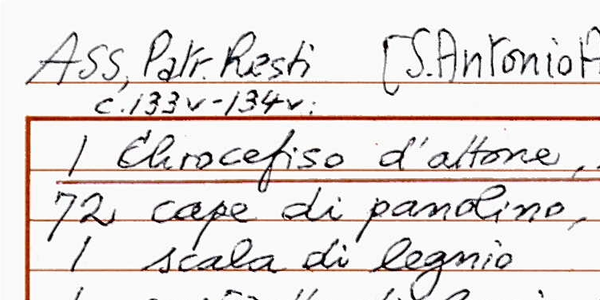 Ass, Patr. Resti [S. Antonio A
c. 133v-134v:
1 Chrocefiso d'attone,
72 cape di panolino,
1 scala di legnio